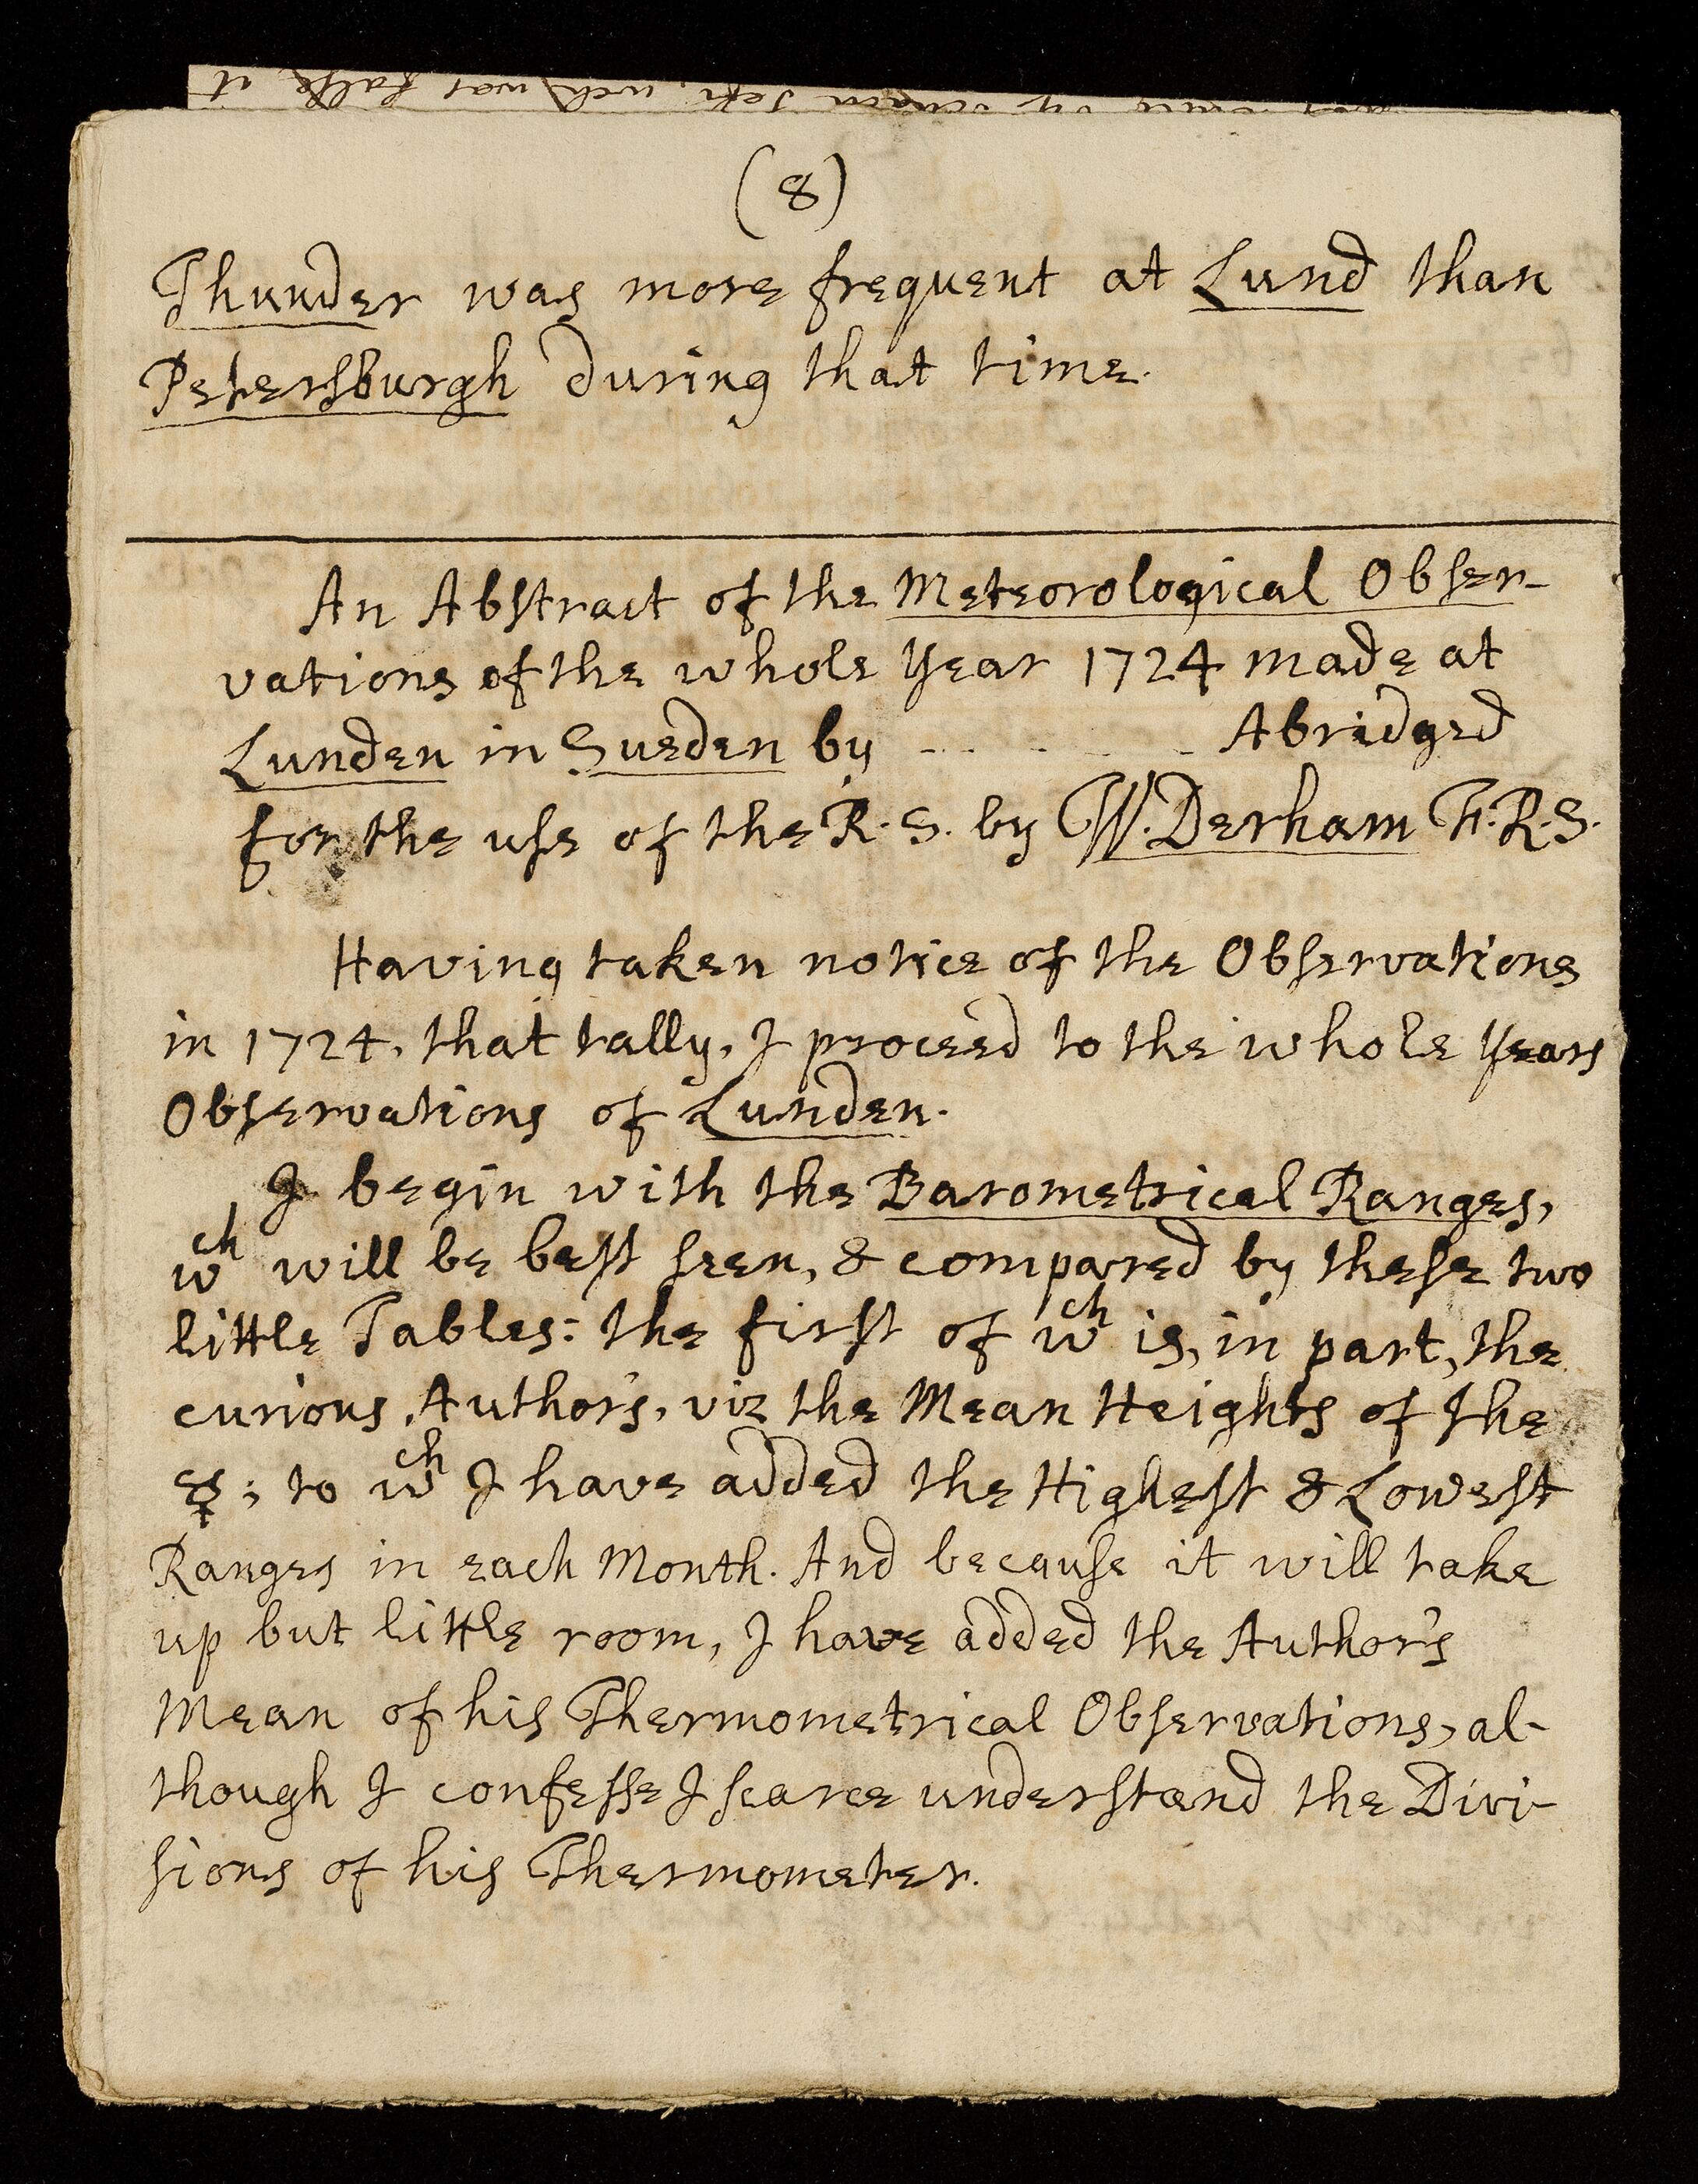 (8)
Thunder was more frequent at Lund than
Petersburgh during that time.
An Abstract of the Meteorological Obser-
vations of the whole Year 1724 made at
Lunden in Sueden by - - - - - - Abridged
for the use of the R. S. by W. Derham F.R.S.
Having taken notice of the Observations
in 1724, that tally, I proceed to the whole Years
Observations of Lunden.
I begin with the Barometrical Ranges,
wch will be best seen, & compared by these two
little Tables: the first of wch is, in part, the
curious Author's, viz the Mean Heights of the
☿; to wch I have added the Highest & Lowest
Ranges in each Month. And because it will take
up but little room, I have added the Author's
Mean of his Thermometrical Observations, al-
though I confesse I scarce understand the Divi-
sions of his Thermometer.